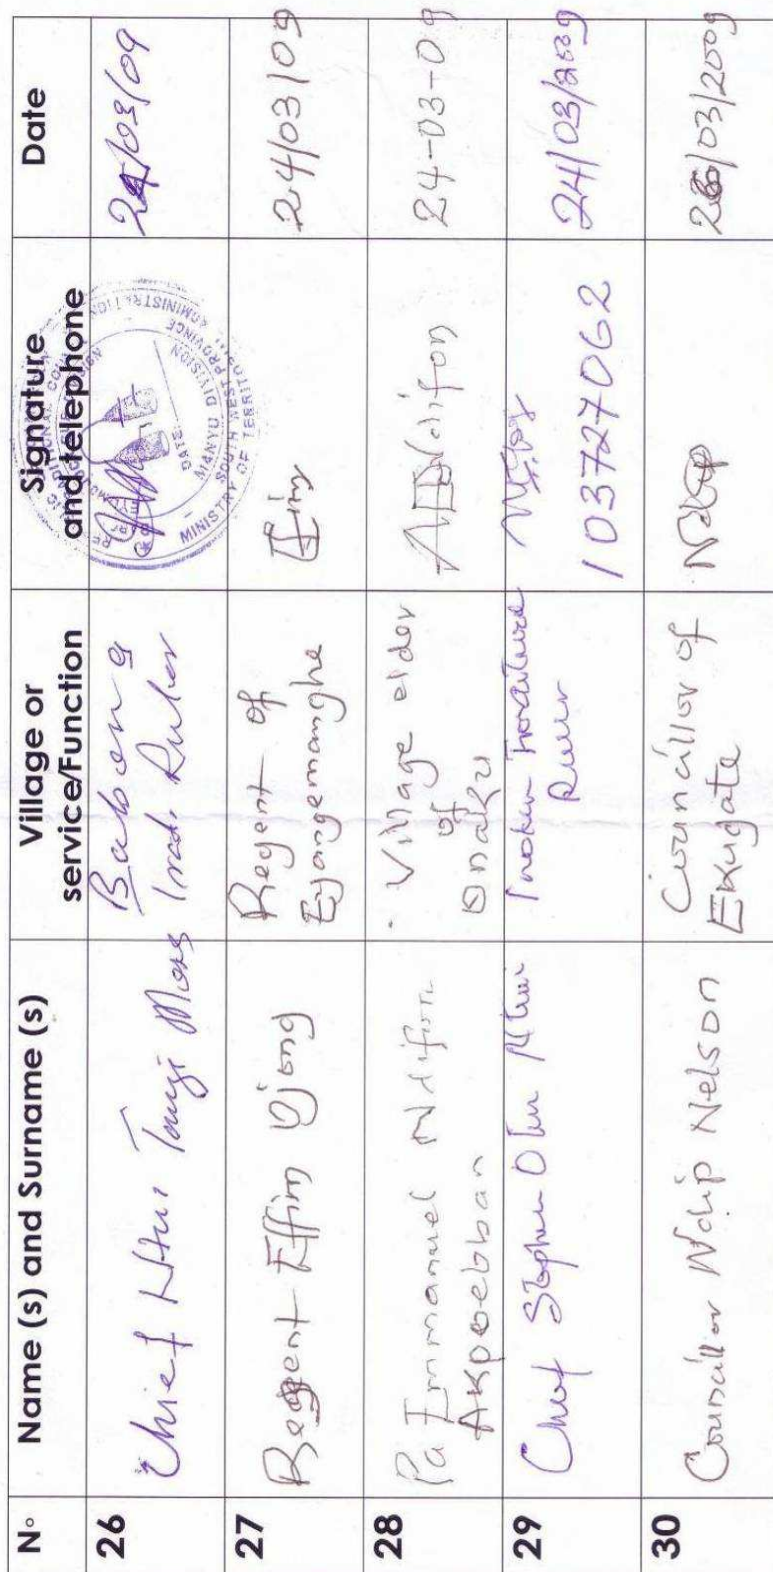 N° Name (s) and Surname (s) Village or service/Function Signature and telephone Date
26 Chief Tangi Babong Trad. Ruler 24/03/09
MINISTRY OF TERRITORIAL ADMINISTRATION
SOUTH WEST PROVINCE
MANYU DIVISION
DATE:
27 Regent Effim Ojong Regent of Eyangemanghe Efim 24/03/09
28 Pa Emmanuel Ndifon
Akpoebban Village elder of Onaku Ndifon 24-03-09
29 Chief Stephen Ruler
103727062 24/03/2009
30 Councillor Ndip Nelson Councillor of Ekugate Ndip /03/2009